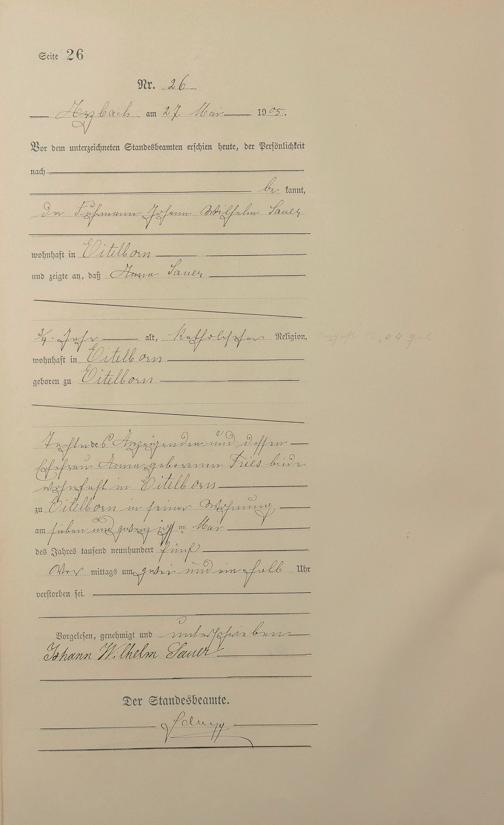 Seite 26
Nr. 26
Arzbach am 27 Mai 1905.
Vor dem unterzeichneten Standesbeamten erschien heute, der Persönlichkeit
nach
be kannt,
der Fuhrmann Johann Wilhelm Sauer
wohnhaft in Eitelborn
und zeigte an, daß Anna Sauer
3/4 Jahr alt, katholischer Religion,
wohnhaft in Eitelborn
geboren zu Eitelborn
Tochter des Anzeigenden und dessen
Ehefrau Anna geborenen Fries beide
wohnhaft in Eitelborn
zu Eitelborn in seiner Wohnung
am sieben und zwanzigsten Mai
des Jahres tausend neunhundert fünf
Vor mittags um zwei und ein halb Uhr
verstorben sei.
Vorgelesen, genehmigt und unterschrieben
Johann Wilhelm Sauer
Der Standesbeamte.